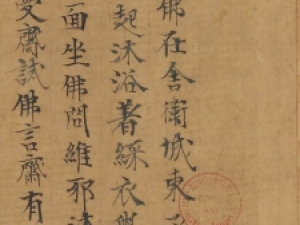 佛在舍衛城東
起沐浴著綵衣
面坐佛問維耶
受齋試佛言齋有